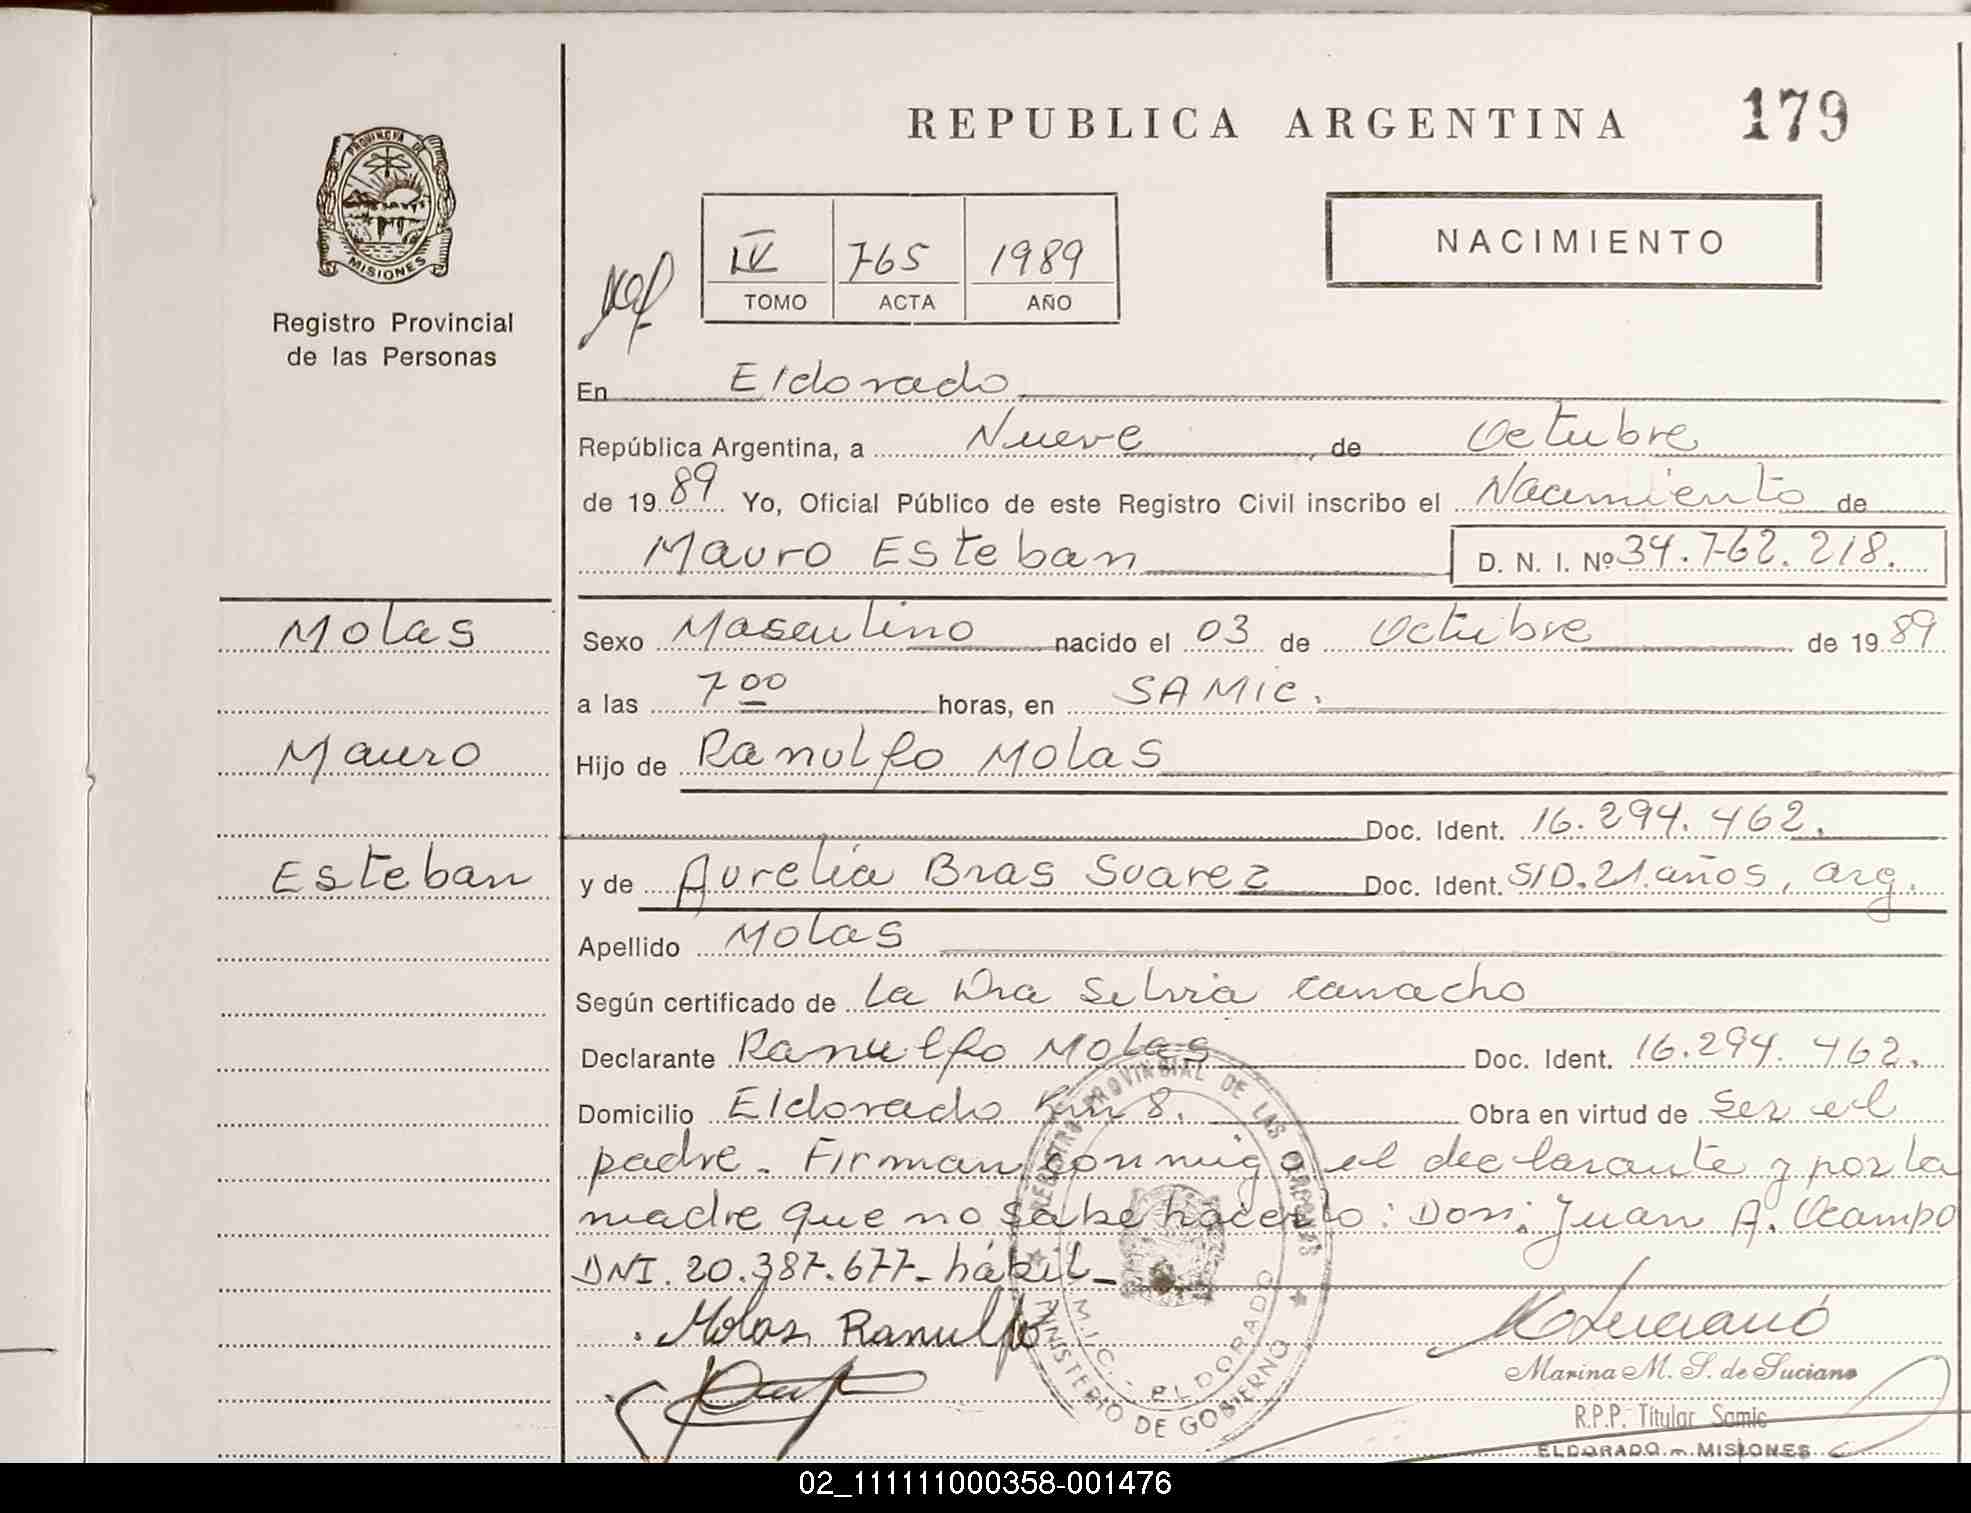 PROVINCIA DE
MISIONES
Registro Provincial
de las Personas
REPUBLICA ARGENTINA 179
IV 765 1989
TOMO ACTA AÑO
NACIMIENTO
En Eldorado
República Argentina, a Nueve, de Octubre
de 1989 Yo, Oficial Público de este Registro Civil inscribo el Nacimiento de
Mauro Esteban D. N. I. Nº 34.762.218.
Molas
Mauro
Esteban
Sexo Masculino nacido el 03 de Octubre de 1989
a las 7 00 horas, en SAMIC.
Hijo de Ranulfo Molas
Doc. Ident. 16.294.462.
y de Aurelia Bras Suarez Doc. Ident. S/D. 21 años, arg.
Apellido Molas
Según certificado de La Dra Silvia Camacho
Declarante Ranulfo Molas Doc. Ident. 16.294.462.
Domicilio Eldorado Km 8. Obra en virtud de Ser el
padre. Firman conmigo el declarante y por la
madre que no sabe hacerlo: Don: Juan A. Ocampo
DNI. 20.387.677- hábil-
Molas Ranulfo
REGISTRO PROVINCIAL DE LAS PERSONAS
MINISTERIO DE GOBIERNO
ELDORADO
Marina M. S. de Luciano
R.P.P. Titular Samic
ELDORADO - MISIONES
02_111111000358-001476